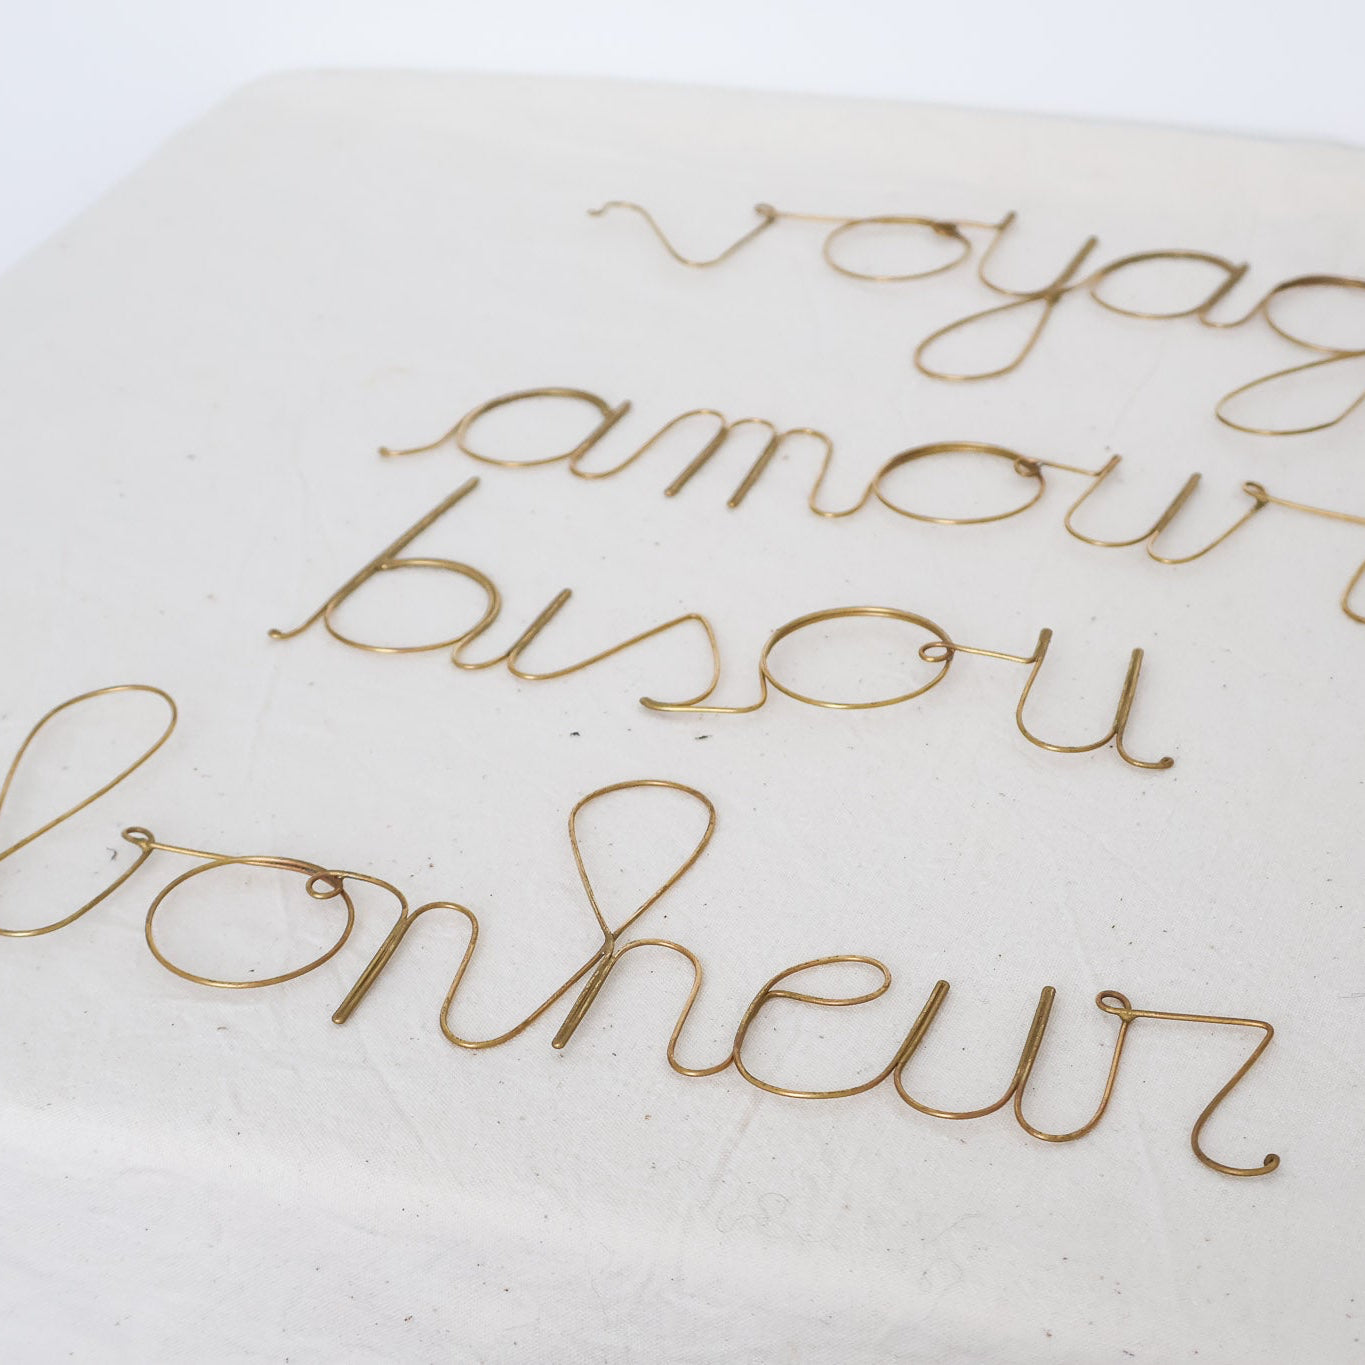 voyag
amour
bisou
bonheur